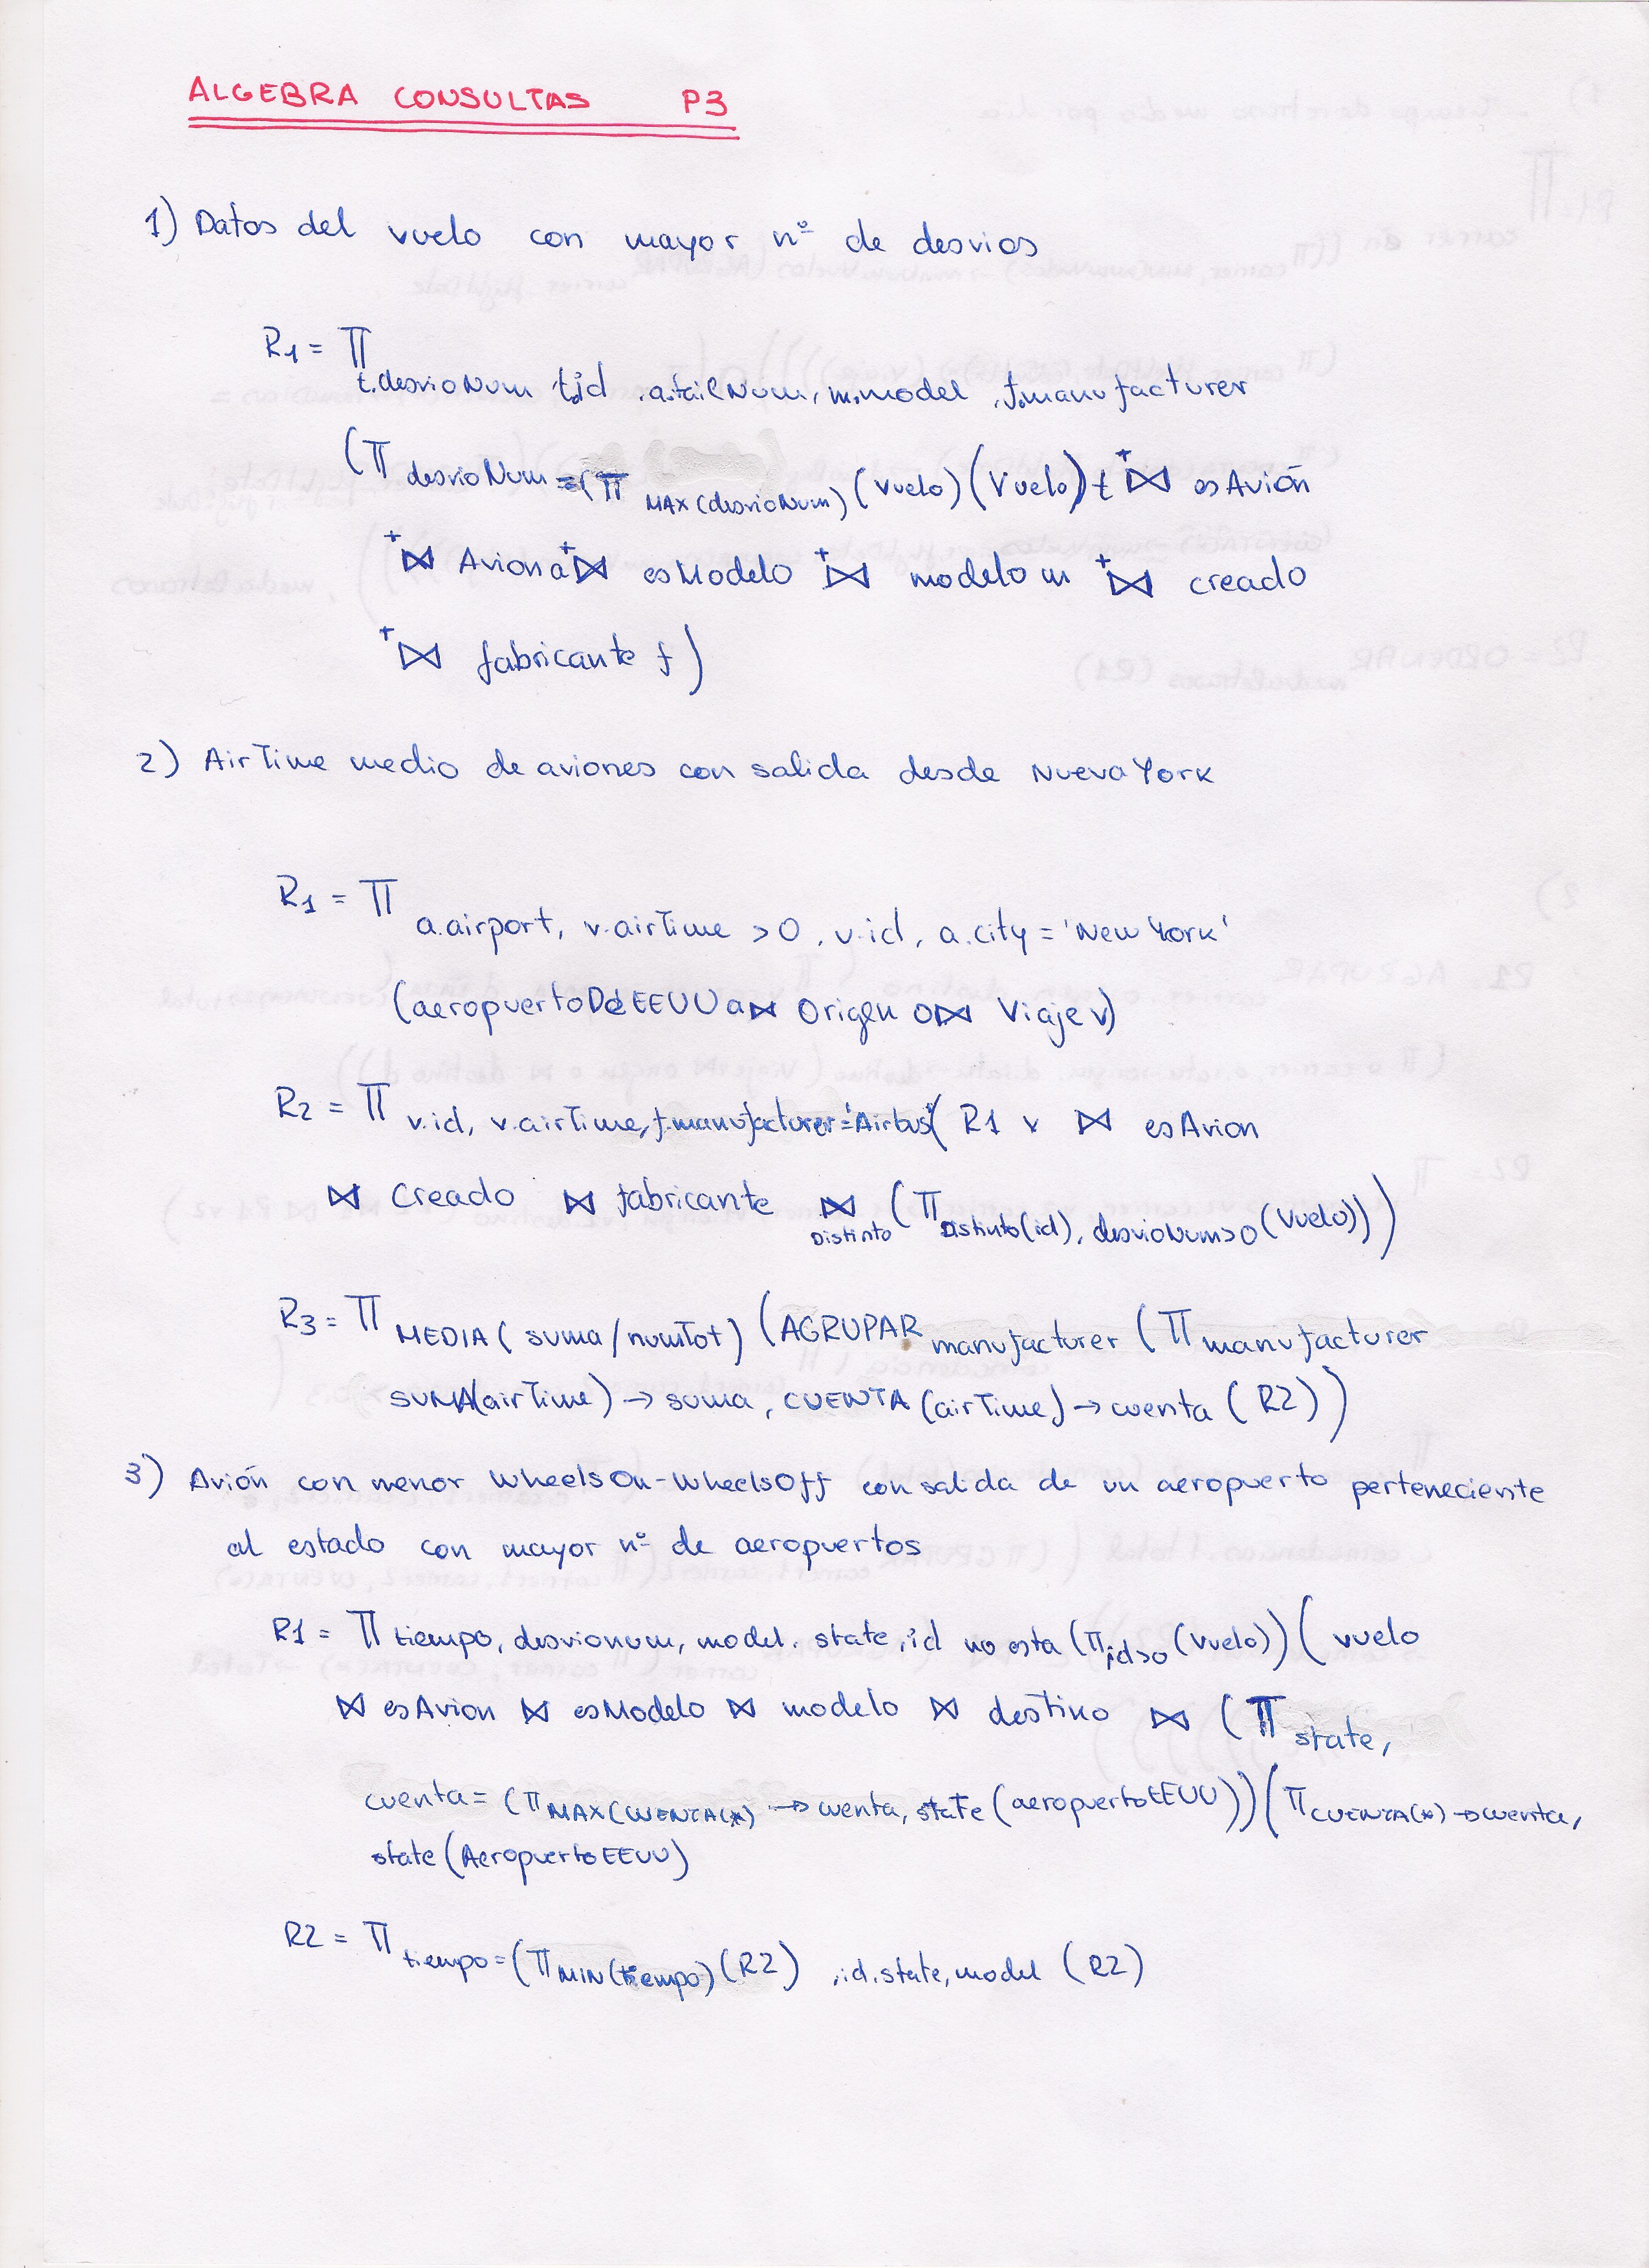 ALGEBRA CONSULTAS P3
1) Datos del vuelo con mayor nº de desvios
R1 = π
t.desvioNum, t.id, a.tailNum, m.model, f.manufacturer
(π desvioNum = (π MAX(desvioNum) (vuelo) (Vuelo) t +⋈ esAvión
+⋈ Avion a +⋈ esModelo +⋈ modelo m +⋈ creado
+⋈ fabricante f)
2) AirTime medio de aviones con salida desde Nueva York
R1 = π a.airport, v.airTime > 0, v.id, a.city = 'New York'
(aeropuertoDeEEUU a ⋈ Origen o ⋈ Viaje v)
R2 = π v.id, v.airTime, f.manufacturer='Airbus' ( R1 v ⋈ esAvion
⋈ Creado ⋈ fabricante ⋈ Distinto (π Distinto(id), desvioNum>0 (Vuelo)))
R3 = π MEDIA (suma/numTot) (AGRUPAR manufacturer (π manufacturer
SUMA(airTime) → suma, CUENTA (airTime) → cuenta (R2)))
3) Avión con menor wheelsOn-wheelsOff con salida de un aeropuerto perteneciente
al estado con mayor nº de aeropuertos
R1 = π tiempo, desvionum, model, state, id no esta (π id>0 (Vuelo)) ( vuelo
⋈ esAvion ⋈ esModelo ⋈ modelo ⋈ destino ⋈ (π state,
cuenta = (π MAX(CUENTA(*) → cuenta, state (aeropuertoEEUU)) (π CUENTA(*) → cuenta,
state (AeropuertoEEUU)
R2 = π tiempo = (π MIN(tiempo) (R2) , id, state, model (R2)